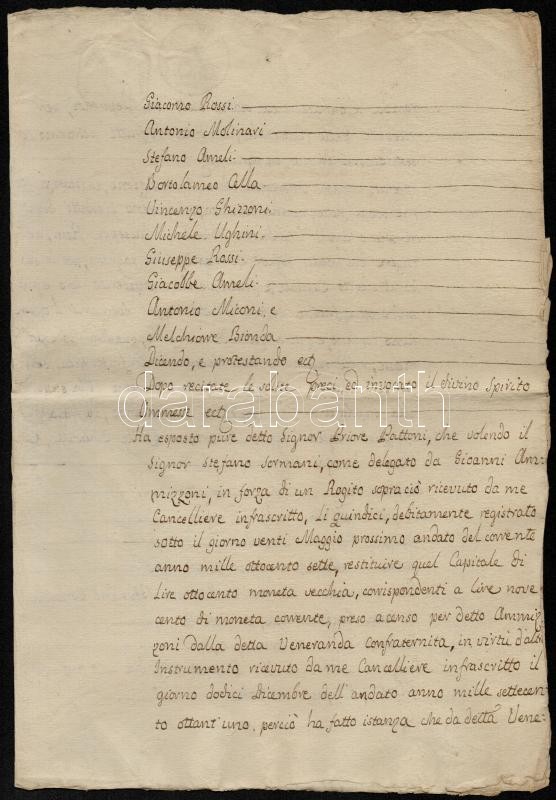 Giacomo Rossi.
Antonio Molinari
Stefano Ameli.
Bortolameo Cella.
Vincenzo Ghizzoni.
Michele Ughini.
Giuseppe Rossi.
Giacobbe Ameli.
Antonio Miconi, e
Melchiorre Bionda.
Dicendo, e protestando ect
Dopo recitate le solite Preci, ed invocato il divino Spirito
Ommesse ect
Ha esposto pure detto Signor Priore Pattoni, che volendo il
Signor Stefano Sormani, come delegato da Gioanni Am-
mizzoni, in forza di un Rogito sopraciò ricevuto da me
Cancelliere infrascritto, Li quindici, debitamente registrato
sotto il giorno venti Maggio prossimo andato del corrente
anno mille ottocento sette, restituire quel Capitale di
Lire ottocento moneta vecchia, corrispondenti a lire nove
cento di moneta corrente, preso a censo per detto Ammiz
zoni dalla detta Veneranda Confraternita, in virtù d'altro
Instrumento ricevuto da me Cancelliere infrascritto il
giorno dodici Dicembre dell'andato anno mille settecen
to ottant'uno, perciò ha fatto istanza che da detta Vene=
darabanth